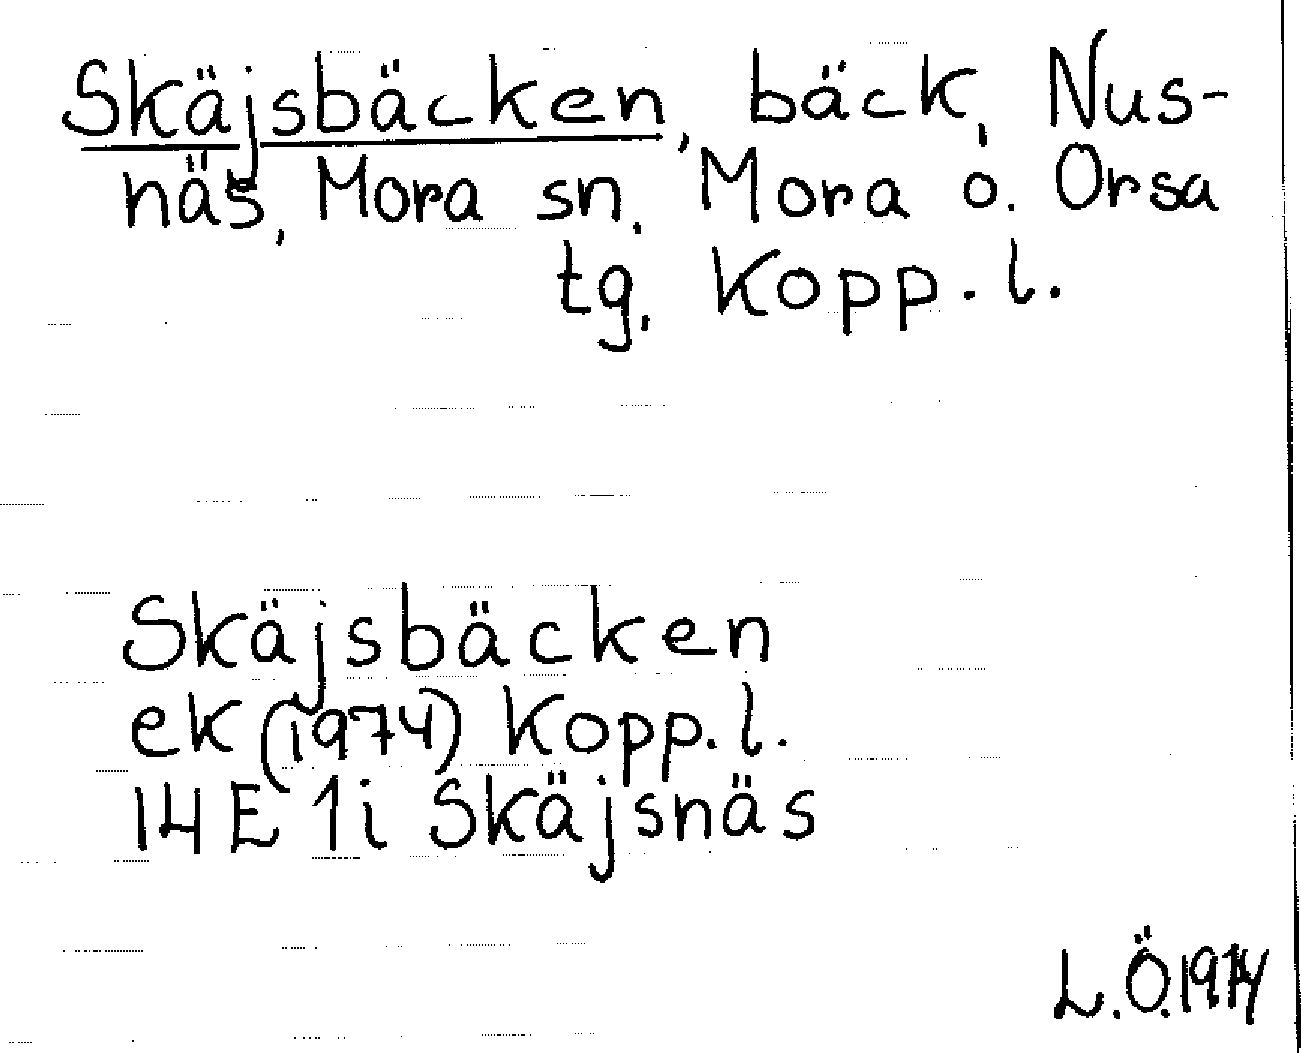 Skäjsbäcken, bäck, Nus-
näs, Mora sn, Mora o. Orsa
tg, Kopp. l.
Skäjsbäcken
ek (1974) Kopp. l.
14 E 1i Skäjsnäs
L.Ö.1974